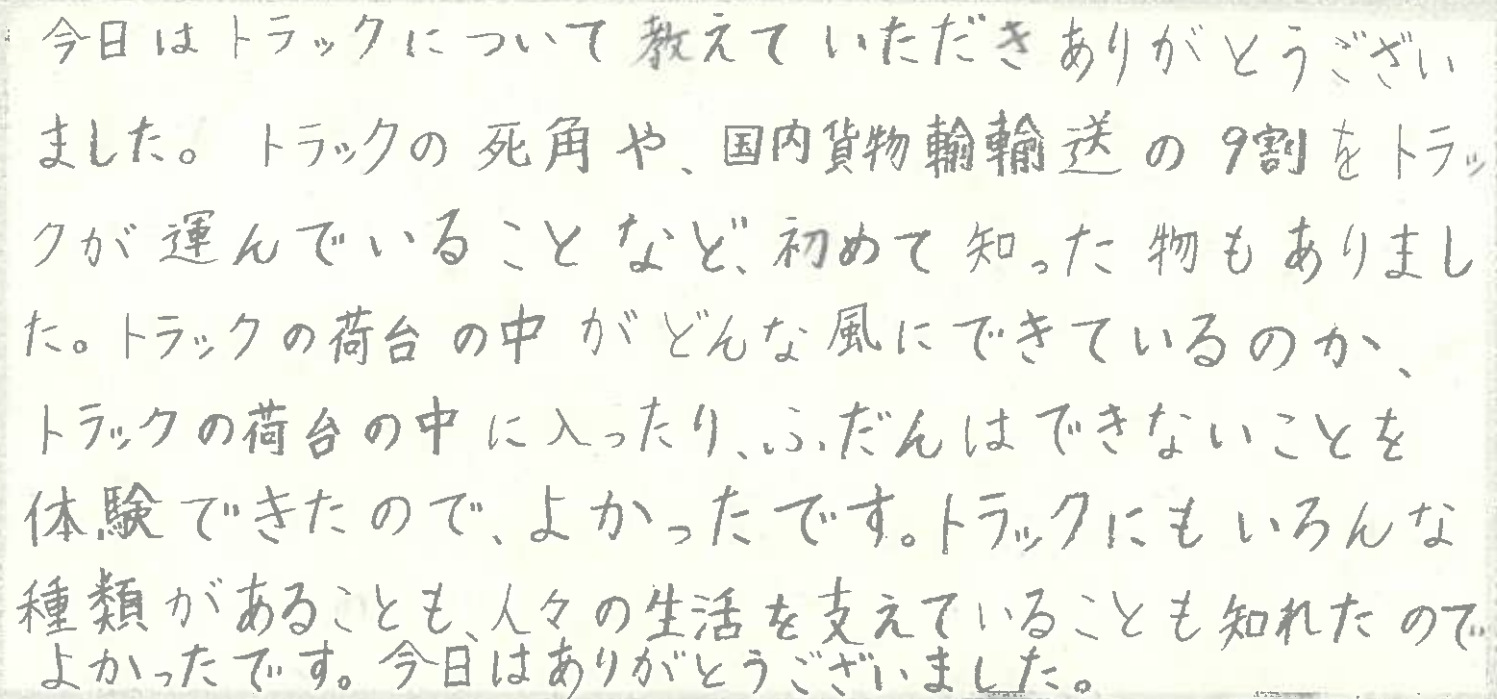 今日はトラックについて教えていただきありがとうござい
ました。トラックの死角や、国内貨物輸輸送の9割をトラッ
クが運んでいることなど、初めて知った物もありまし
た。トラックの荷台の中がどんな風にできているのか、
トラックの荷台の中に入ったり、ふだんはできないことを
体験できたので、よかったです。トラックにもいろんな
種類があることも、人々の生活を支えていることも知れたので
よかったです。今日はありがとうございました。